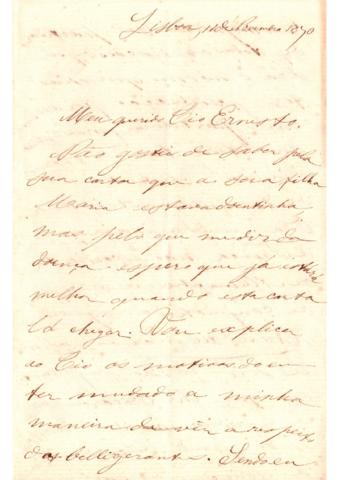 Lisboa, 14 de Novembro 1870
Meu querido Tio Ernesto.
Não gostei de saber pela
sua carta que a sua filha
Maria estava doentinha,
mas pelo que me diz da
doença espero que já estará
melhor quando esta carta
lá chegar. Vou explicar
ao Tio os motivos de eu
ter mudado a minha
maneira de ver a respeito
dos belligerantes. Sendo eu